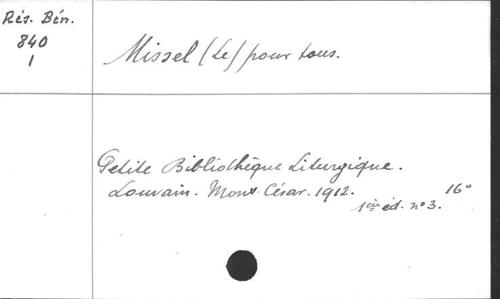 Rés. Bén.
840
1
Missel (Le) pour tous.
Petite Bibliothèque Liturgique.
Louvain. Mont César. 1912. 16°
1ère éd. n° 3.